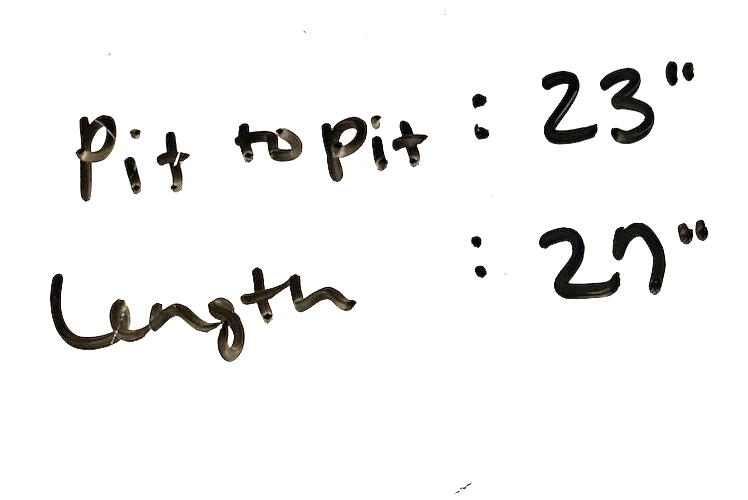 pit to pit : 23"
Length : 27"